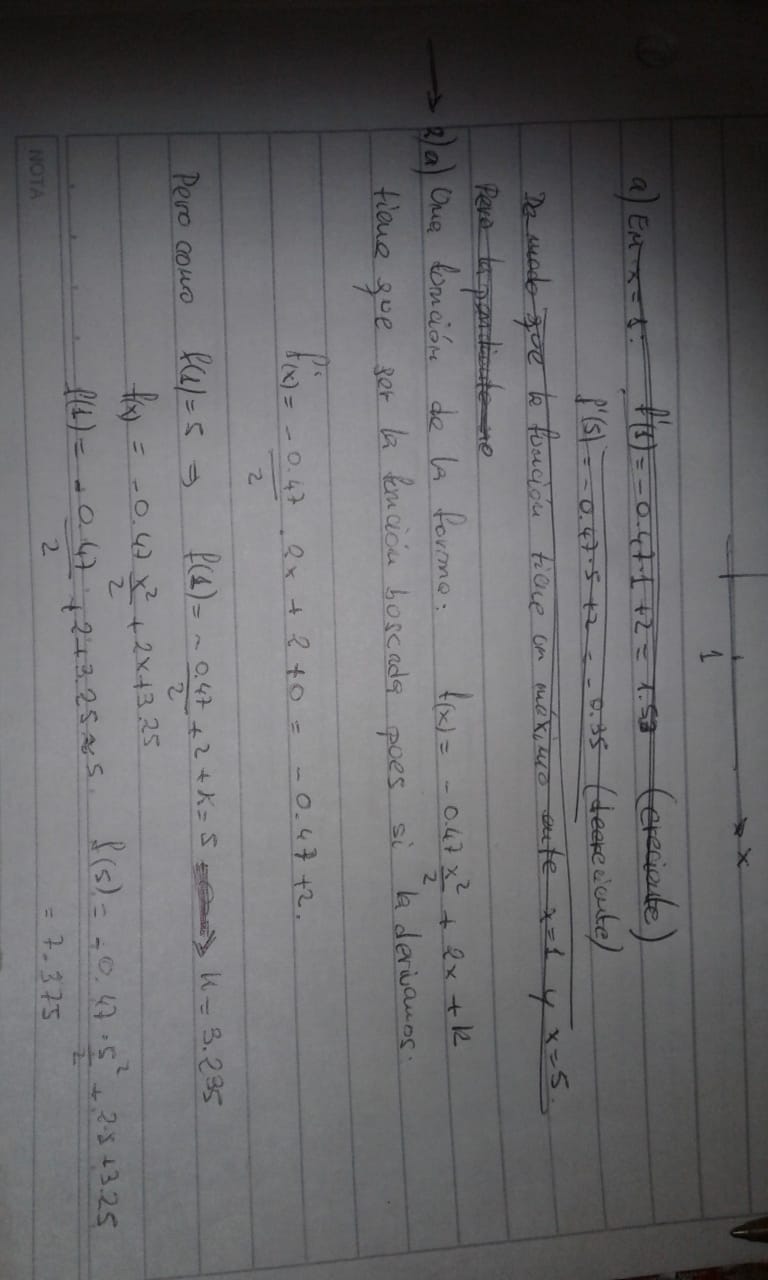 x
1
a) En x = 1: f'(1) = -0.47·1 + 2 = 1.53 (creciente)
f'(5) = -0.47·5 + 2 = -0.35 (decreciente)
De modo que la función tiene un máximo ente x=1 y x=5.
Pero la pendiente no
2) a) Una función de la forma: f(x) = -0.47 x²/2 + 2x + k
tiene que ser la función buscada pues si la derivamos:
f'(x) = -0.47/2 . 2x + 2 + 0 = -0.47 + 2.
Pero como f(1) = 5 ⇒ f(1) = -0.47/2 + 2 + k = 5 → k = 3.235
f(x) = -0.47 x²/2 + 2x + 3.25
f(1) = -0.47/2 + 2 + 3.25 ≈ 5. f(5) = -0.47 · 5²/2 + 2·5 + 3.25
= 7.375
NOTA